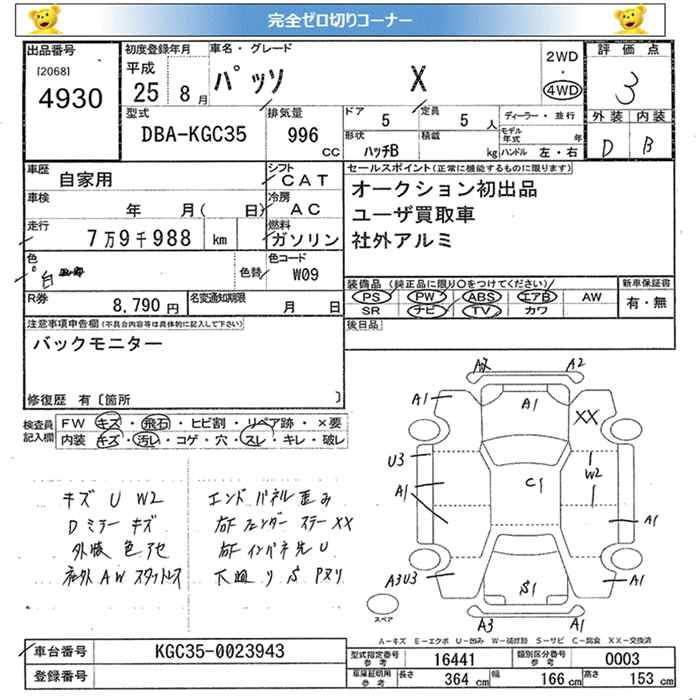 完全ゼロ切りコーナー
出品番号 初度登録年月 車名・グレード 評価点
[2068] 平成 パッソ X 2WD・4WD 3
4930 25 8月
型式 排気量 ドア 定員 ディーラー・並行 外装 内装
DBA-KGC35 996 CC 5 5人 モデル年式 年 D B
形状 積載 ハンドル 左・右
ハッチB kg
車歴 自家用 シフト CAT セールスポイント(正常に機能するものに限ります)
車検 年 月( 日) 冷房 AC オークション初出品
走行 7万9千988 km 燃料 ガソリン ユーザ買取車
社外アルミ
色 白 色替 色コード W09
装備品(純正品に限り○をつけてください) 新車保証書
PS PW ABS エアB AW 有・無
SR ナビ TV カワ
R券 8,790円 名変通知期限 月 日
後日品
注意事項申告欄(不具合内容等は具体的に記入して下さい)
バックモニター
修復歴 有〔箇所 〕
検査員記入欄 FW キズ・飛石・ヒビ割・リペア跡・×要
内装 キズ・汚レ・コゲ・穴・スレ・キレ・破レ
キズ U W2 エンドパネル歪み
Dミラーキズ 右Fフェンダーステー XX
外装色アセ 右Fインパネ先U
社外AWスタットレス 下廻りS Pヌリ
A2
A1 A1 XX
U3 W2
A1 C1
A1
A3U3 S1 A1
A3 A1
スペア
A-キズ E-エクボ U-凹み W-補修跡 S-サビ C-腐食 XX-交換済
車台番号 KGC35-0023943
型式指定番号 参考 16441 類別区分番号 参考 0003
登録番号
車庫証明用 参考 長さ 364 cm 幅 166 cm 高さ 153 cm